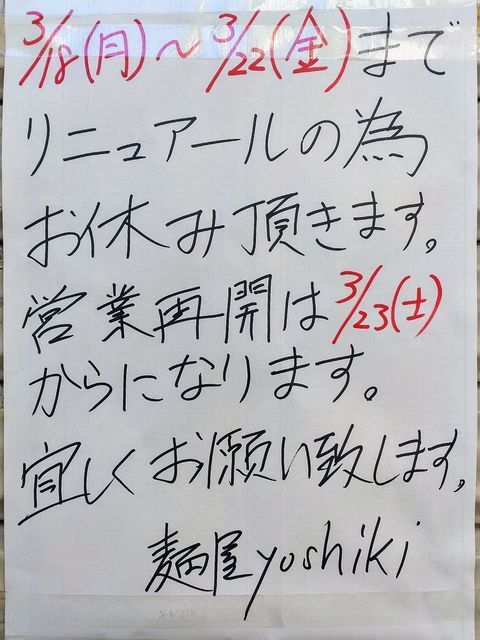 3/18(月)〜3/22(金)まで
リニューアールの為
お休み頂きます。
営業再開は3/23(土)
からになります。
宜しくお願い致します。
麺屋yoshiki